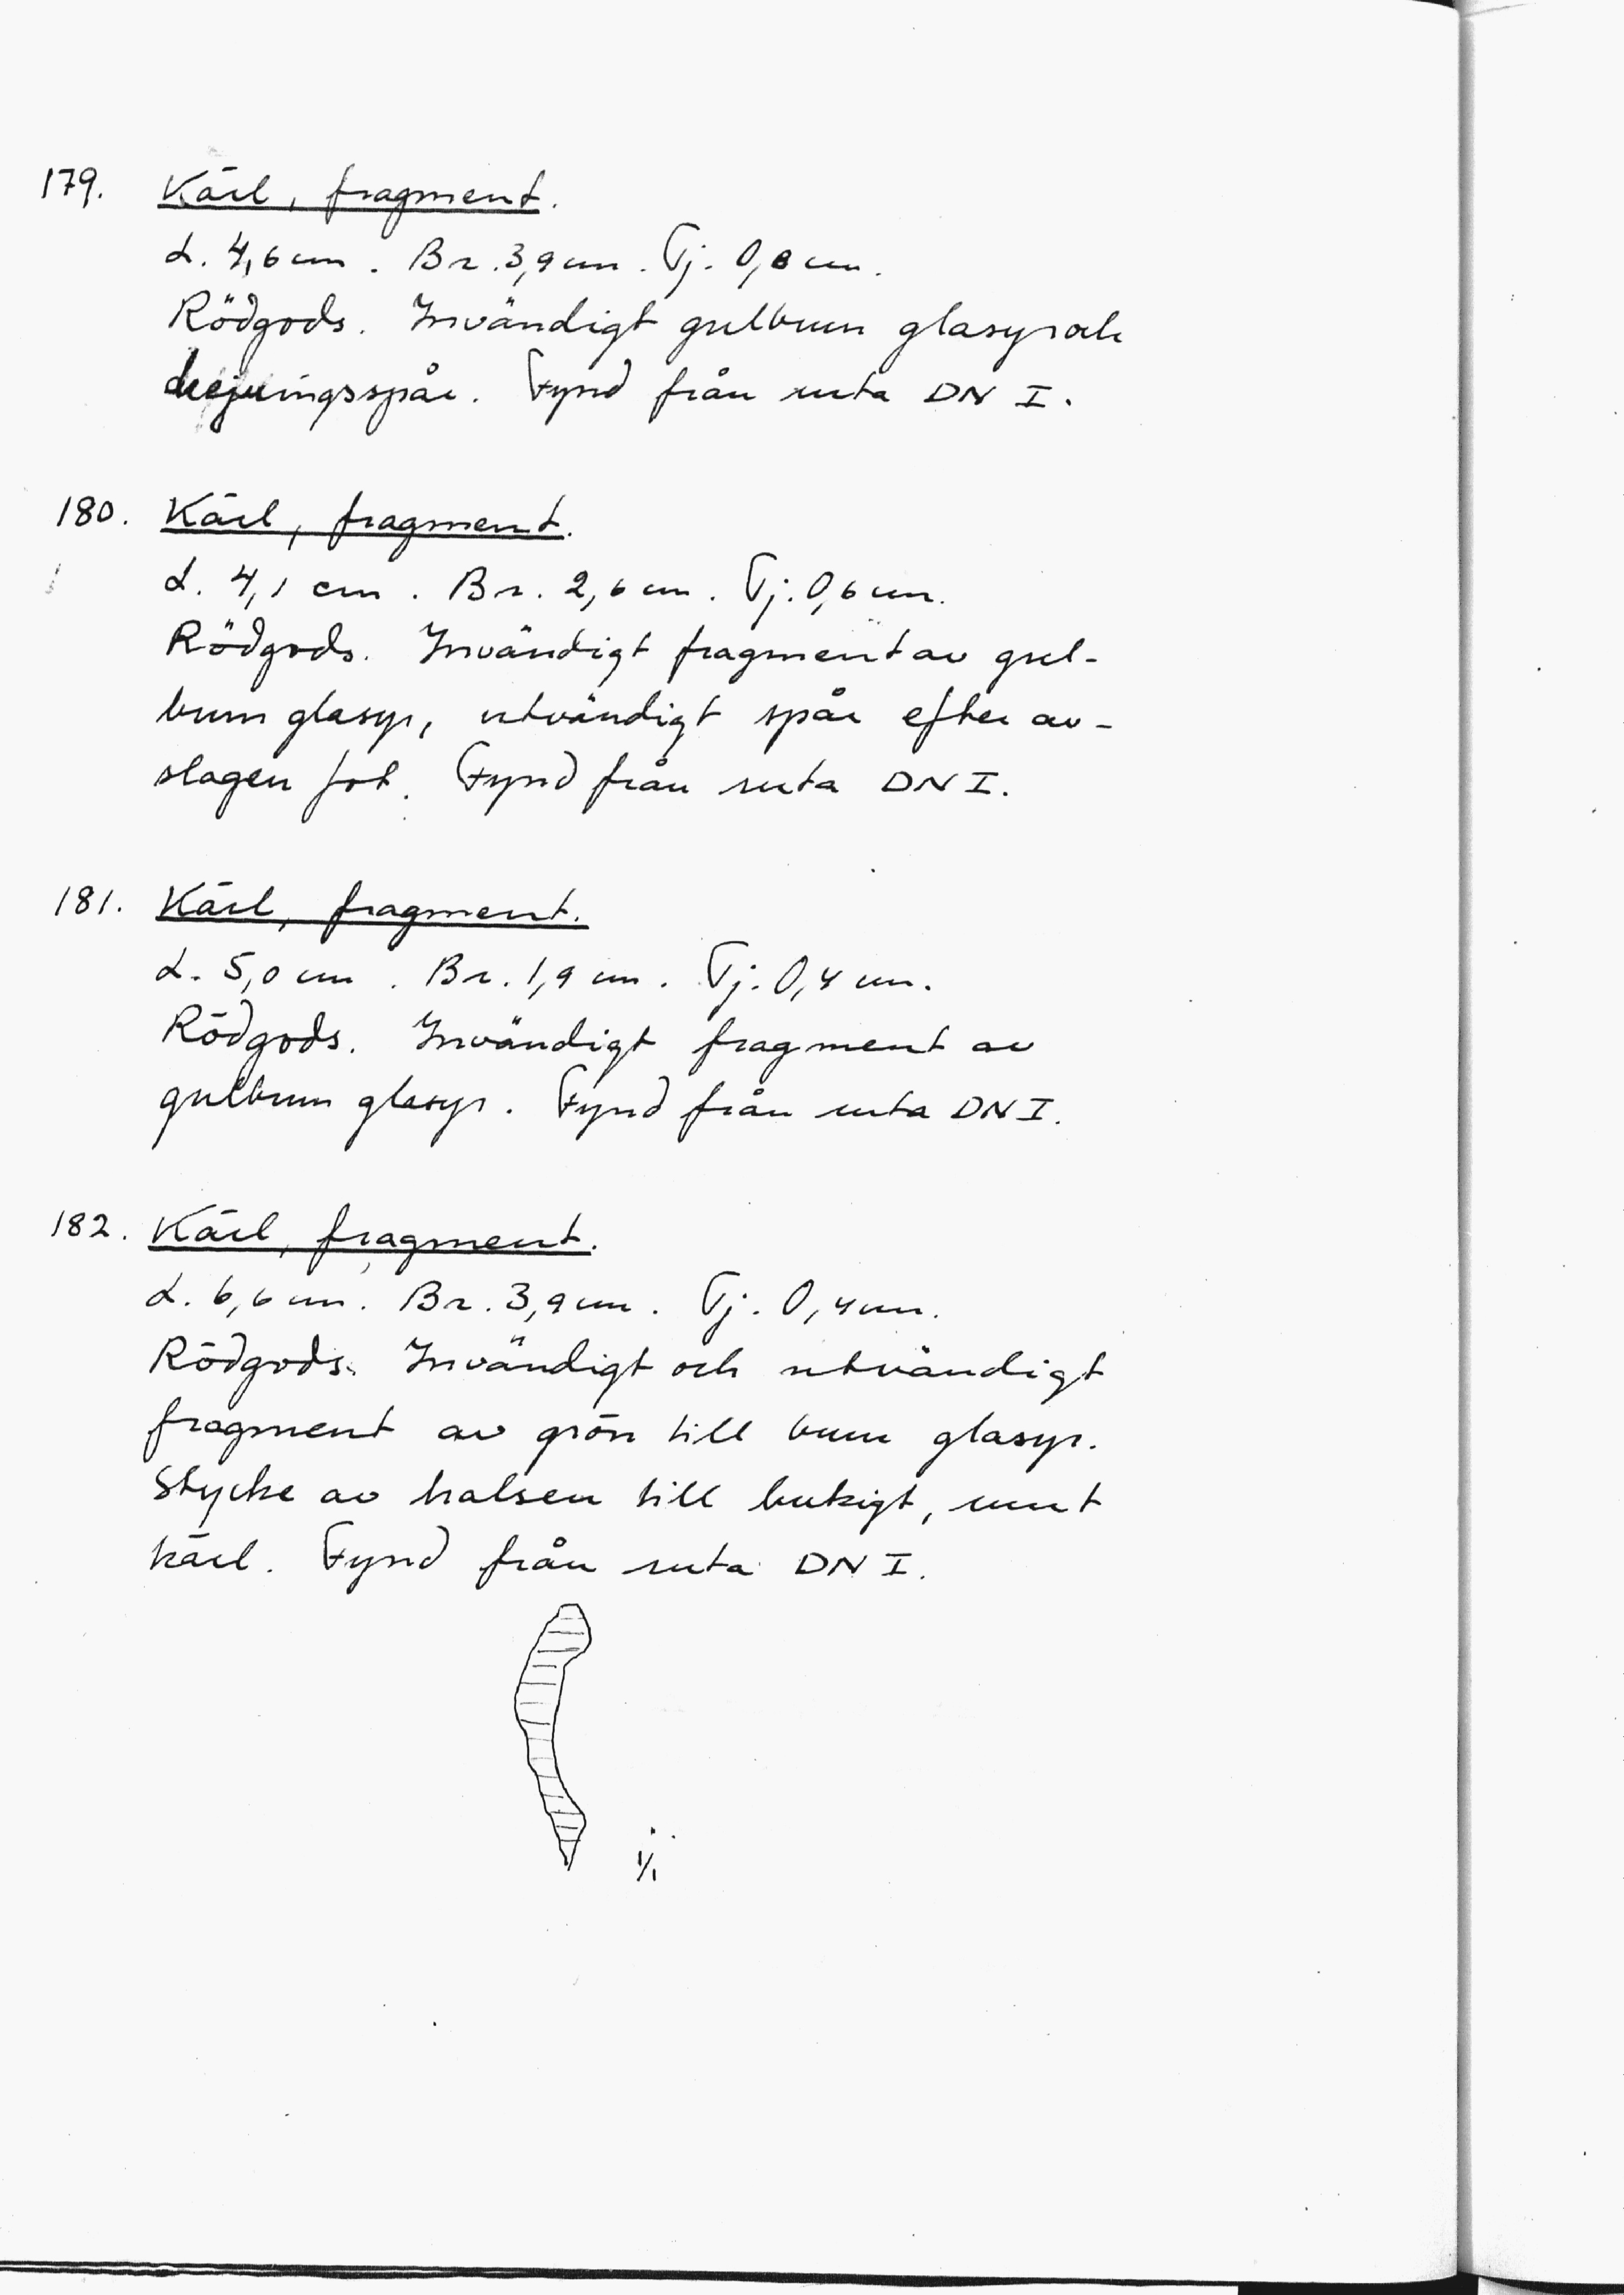 179. Kärl, fragment.
L. 4,6 cm. Br. 3,9 cm. Tj. 0,8 cm.
Rödgods. Invändigt gulbrun glasyr och
drejningsspår. Fynd från ruta DN I.
180. Kärl, fragment.
L. 4,1 cm. Br. 2,6 cm. Tj. 0,6 cm.
Rödgods. Invändigt fragment av gul-
brun glasyr, utvändigt spår efter av-
slagen fot. Fynd från ruta DN I.
181. Kärl, fragment.
L. 5,0 cm. Br. 1,9 cm. Tj. 0,4 cm.
Rödgods. Invändigt fragment av
gulbrun glasyr. Fynd från ruta DN I.
182. Kärl, fragment.
L. 6,6 cm. Br. 3,9 cm. Tj. 0,4 cm.
Rödgods. Invändigt och utvändigt
fragment av grön till brun glasyr.
Stycke av halsen till bukigt, runt
kärl. Fynd från ruta DN I.
1/1